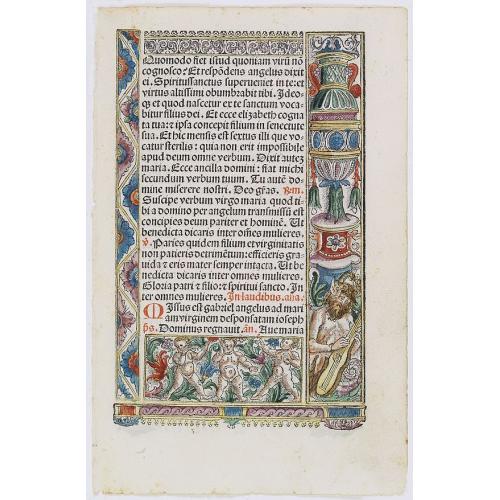 Quomodo fiet istud quoniam virũ nõ
cognosco? Et respõdens angelus dixit
ei. Spiritussanctus superueniet in te: et
virtus altissimi obumbrabit tibi. Ideo-
qz et quod nascetur ex te sanctum voca
bitur filius dei. Et ecce elizabeth cogna
ta tua: & ipsa concepit filium in senectute
sua. Et hic mensis est sextus illi que vo-
catur sterilis: quia non erit impossibile
apud deum omne verbum. Dixit autez
maria. Ecce ancilla domini: fiat michi
secundum verbum tuum. Tu autẽ do-
mine miserere nostri. Deo grãs. R̃m.
Suscipe verbum virgo maria quod ti-
bi a domino per angelum transmissũ est
concipies deum pariter et hominẽ. Ut
benedicta dicaris inter om̃es mulieres.
v̊. Paries quidem filium et virginitatis
non patieris detrimẽtum: efficieris gra-
uida & eris mater semper intacta. Ut be
nedicta dicaris inter omnes mulieres.
Gloria patri & filio: & spiritui sancto. In
ter omnes mulieres. In laudibus. aña.
Missus est gabriel angelus ad mari
am virginem desponsatam ioseph
p̃s. Dominus regnauit. añ. Aue maria